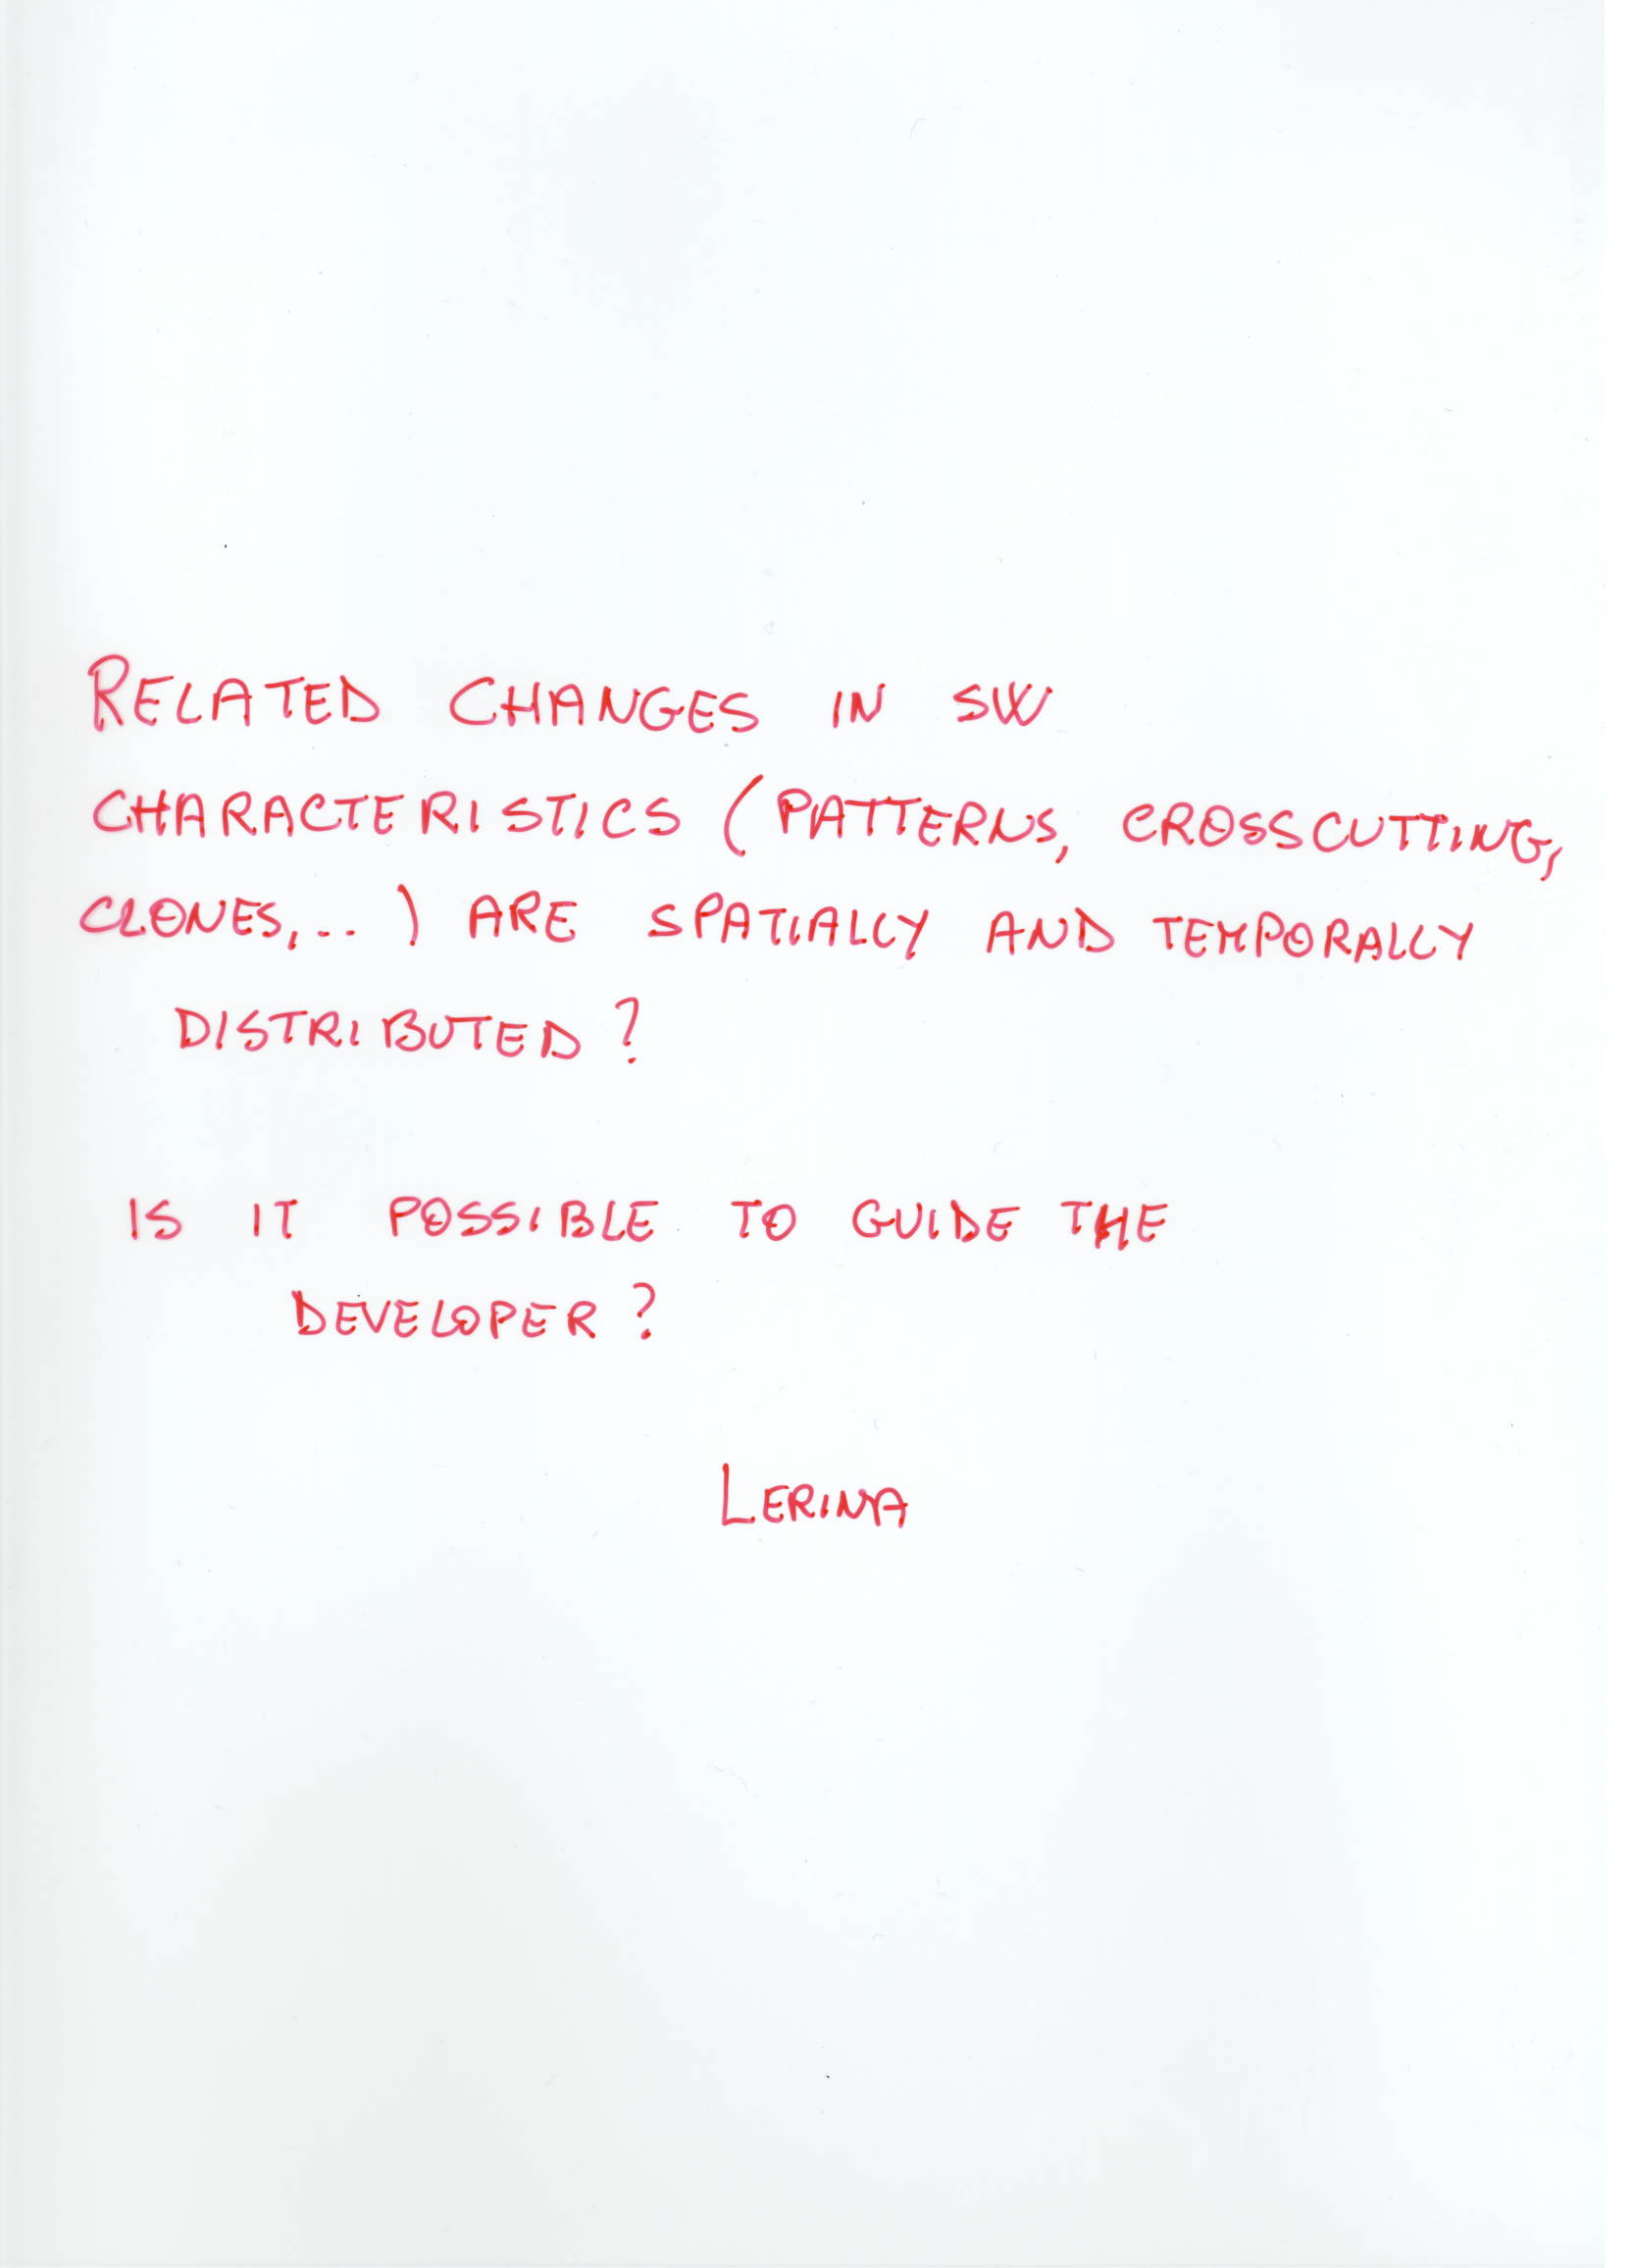 RELATED CHANGES IN SW
CHARACTERISTICS (PATTERNS, CROSSCUTTING,
CLONES,...) ARE SPATIALLY AND TEMPORALLY
DISTRIBUTED?
IS IT POSSIBLE TO GUIDE THE
DEVELOPER?
LERINA